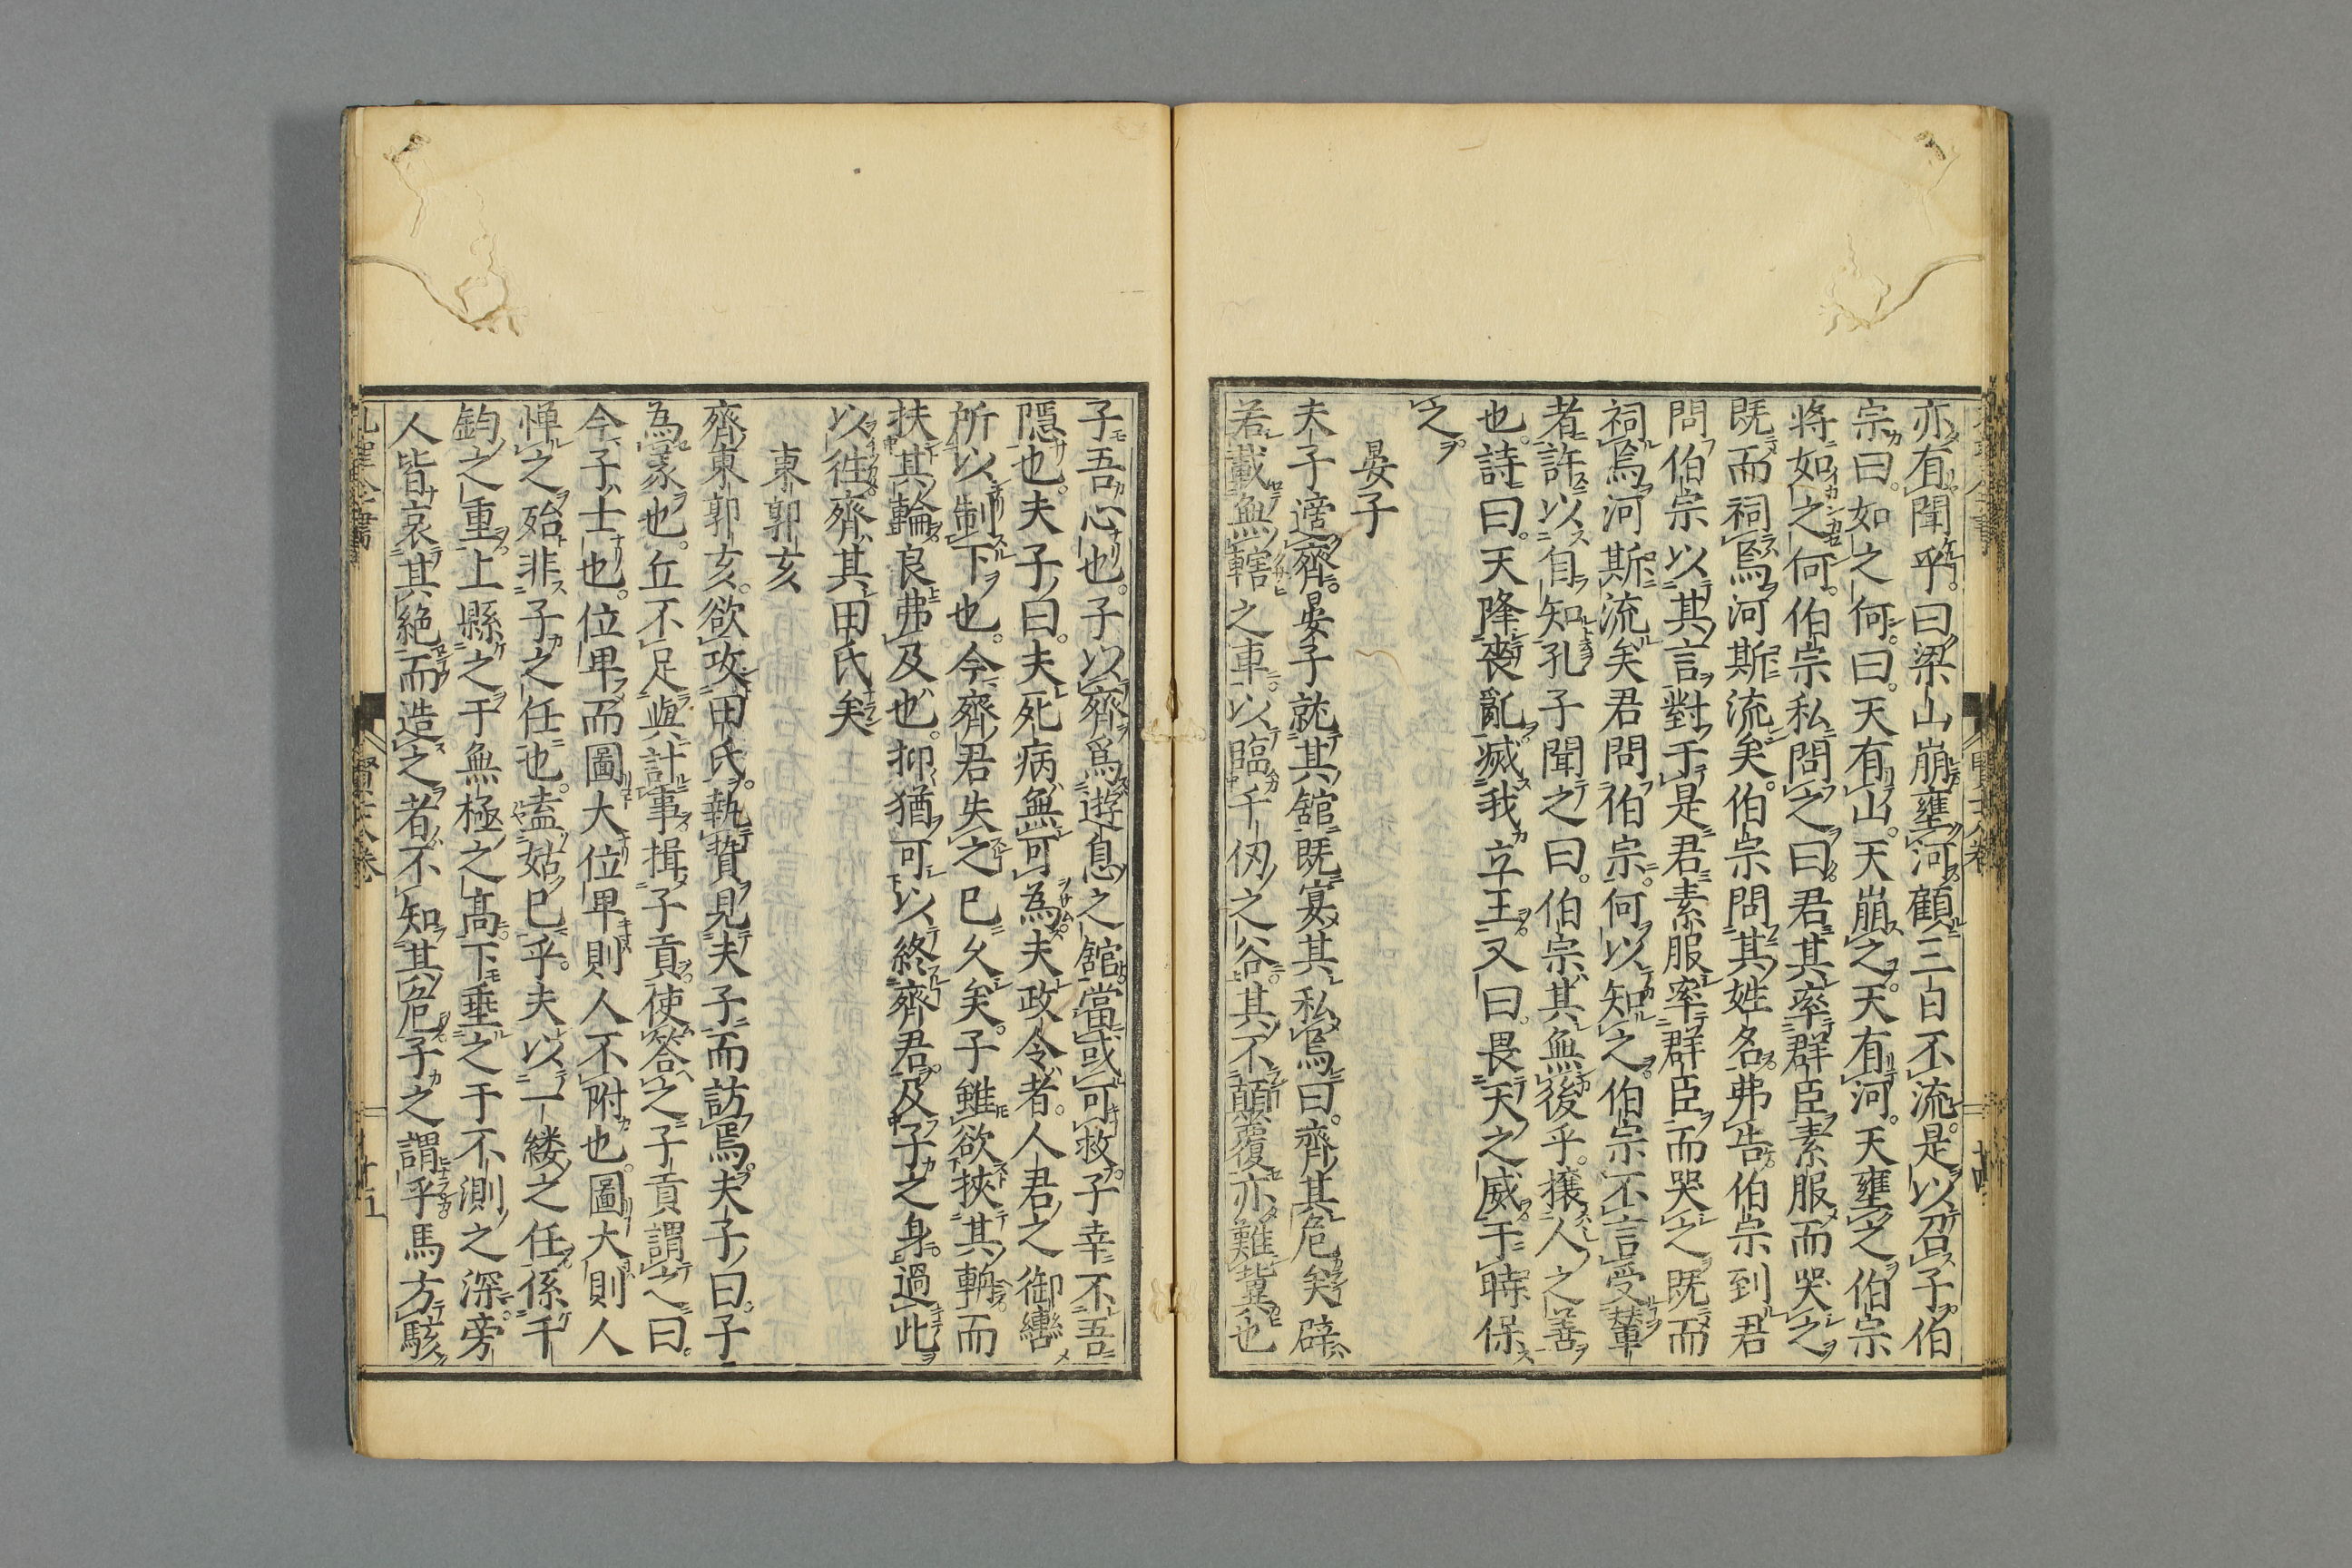 亦有聞乎。曰梁山崩壅河顧三日不流。是以召子伯
宗曰。如之何。曰。天有山。天崩之。天有河。天壅之伯宗
将如之何。伯宗私問之曰。君其率群臣素服而哭之
既而祠焉河斯流矣。伯宗問其姓名。弗告伯宗到君
問伯宗以其言對于是君素服率群臣而哭之既而
祠焉河斯流矣君問伯宗。何以知之。伯宗不言受輦
者許以自知孔子聞之曰。伯宗其無後乎。攘人之善
也。詩曰。天降喪亂。滅我立王。又曰。畏天之威。于時保
之
晏子
夫子適齊。晏子就其舘既宴其私焉曰。齊其危矣辟
若載無轄之車。以臨千仞之谷。其不顛覆亦難冀也
子吾心也。子以齊爲遊息之舘。當或可救子幸不吾
隠也。夫子曰。夫死病無可為。夫政令者。人君之御轡
所以制下也。今齊君失之已久矣。子雖欲挾其輈而
扶其輪良弗及也。抑猶可以終齊君。及子之身。過此
以徃齊其田氏矣
東郭亥
齊東郭亥。欲攻田氏。執贄見夫子而訪焉。夫子曰。子
為義也。丘不足與計事。揖子貢。使答之子貢謂之曰。
今子士也。位卑而圖大位卑則人不附也。圖大則人
憚之殆非子之任也。盍姑已乎。夫以一縷之任。係千
鈞之重。上縣之于無極之髙。下垂之于不測之深。旁
人皆哀其絶而造之者不知其危。子之謂乎。馬方駭